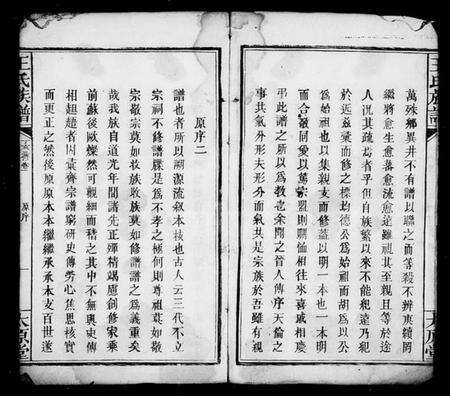 王氏族譜
太原堂
萬殊鄉異井不有譜以聯之而等殺不辨
繼將愈生愈蕃愈流愈遠雖祖其至親且等於途
人況其疏焉者乎但自族繁以來不能祀遠乃祀
於近彙而修之標均德公為始祖而胡為以公
為始祖也以集親支而修蓋以明一本也一本明
而合同愛以篤宗以周恤相往來喜戚相慶
弔此譜之所以為教也余聞之昔人傳序天倫之
事共氣外形夫形分而氣共是宗族於吾雖有親
原序二
譜也者所以溯源流叙本枝也古人云三代不立
宗祠不修譜牒是為不孝之極何則尊祖莫如敬
宗敬宗莫如收族收族莫如修譜譜之為義重矣
哉我族自道光年間諸先正殫精竭慮創修家乘
前蘇後歐燦然可觀細而稽之其中不無與史傳
相者因齋宗譜窮研史傳勞心焦思核實
而更正之然後原原本本繼繼承承本支百世遂
王氏族譜
原序
一
太原堂